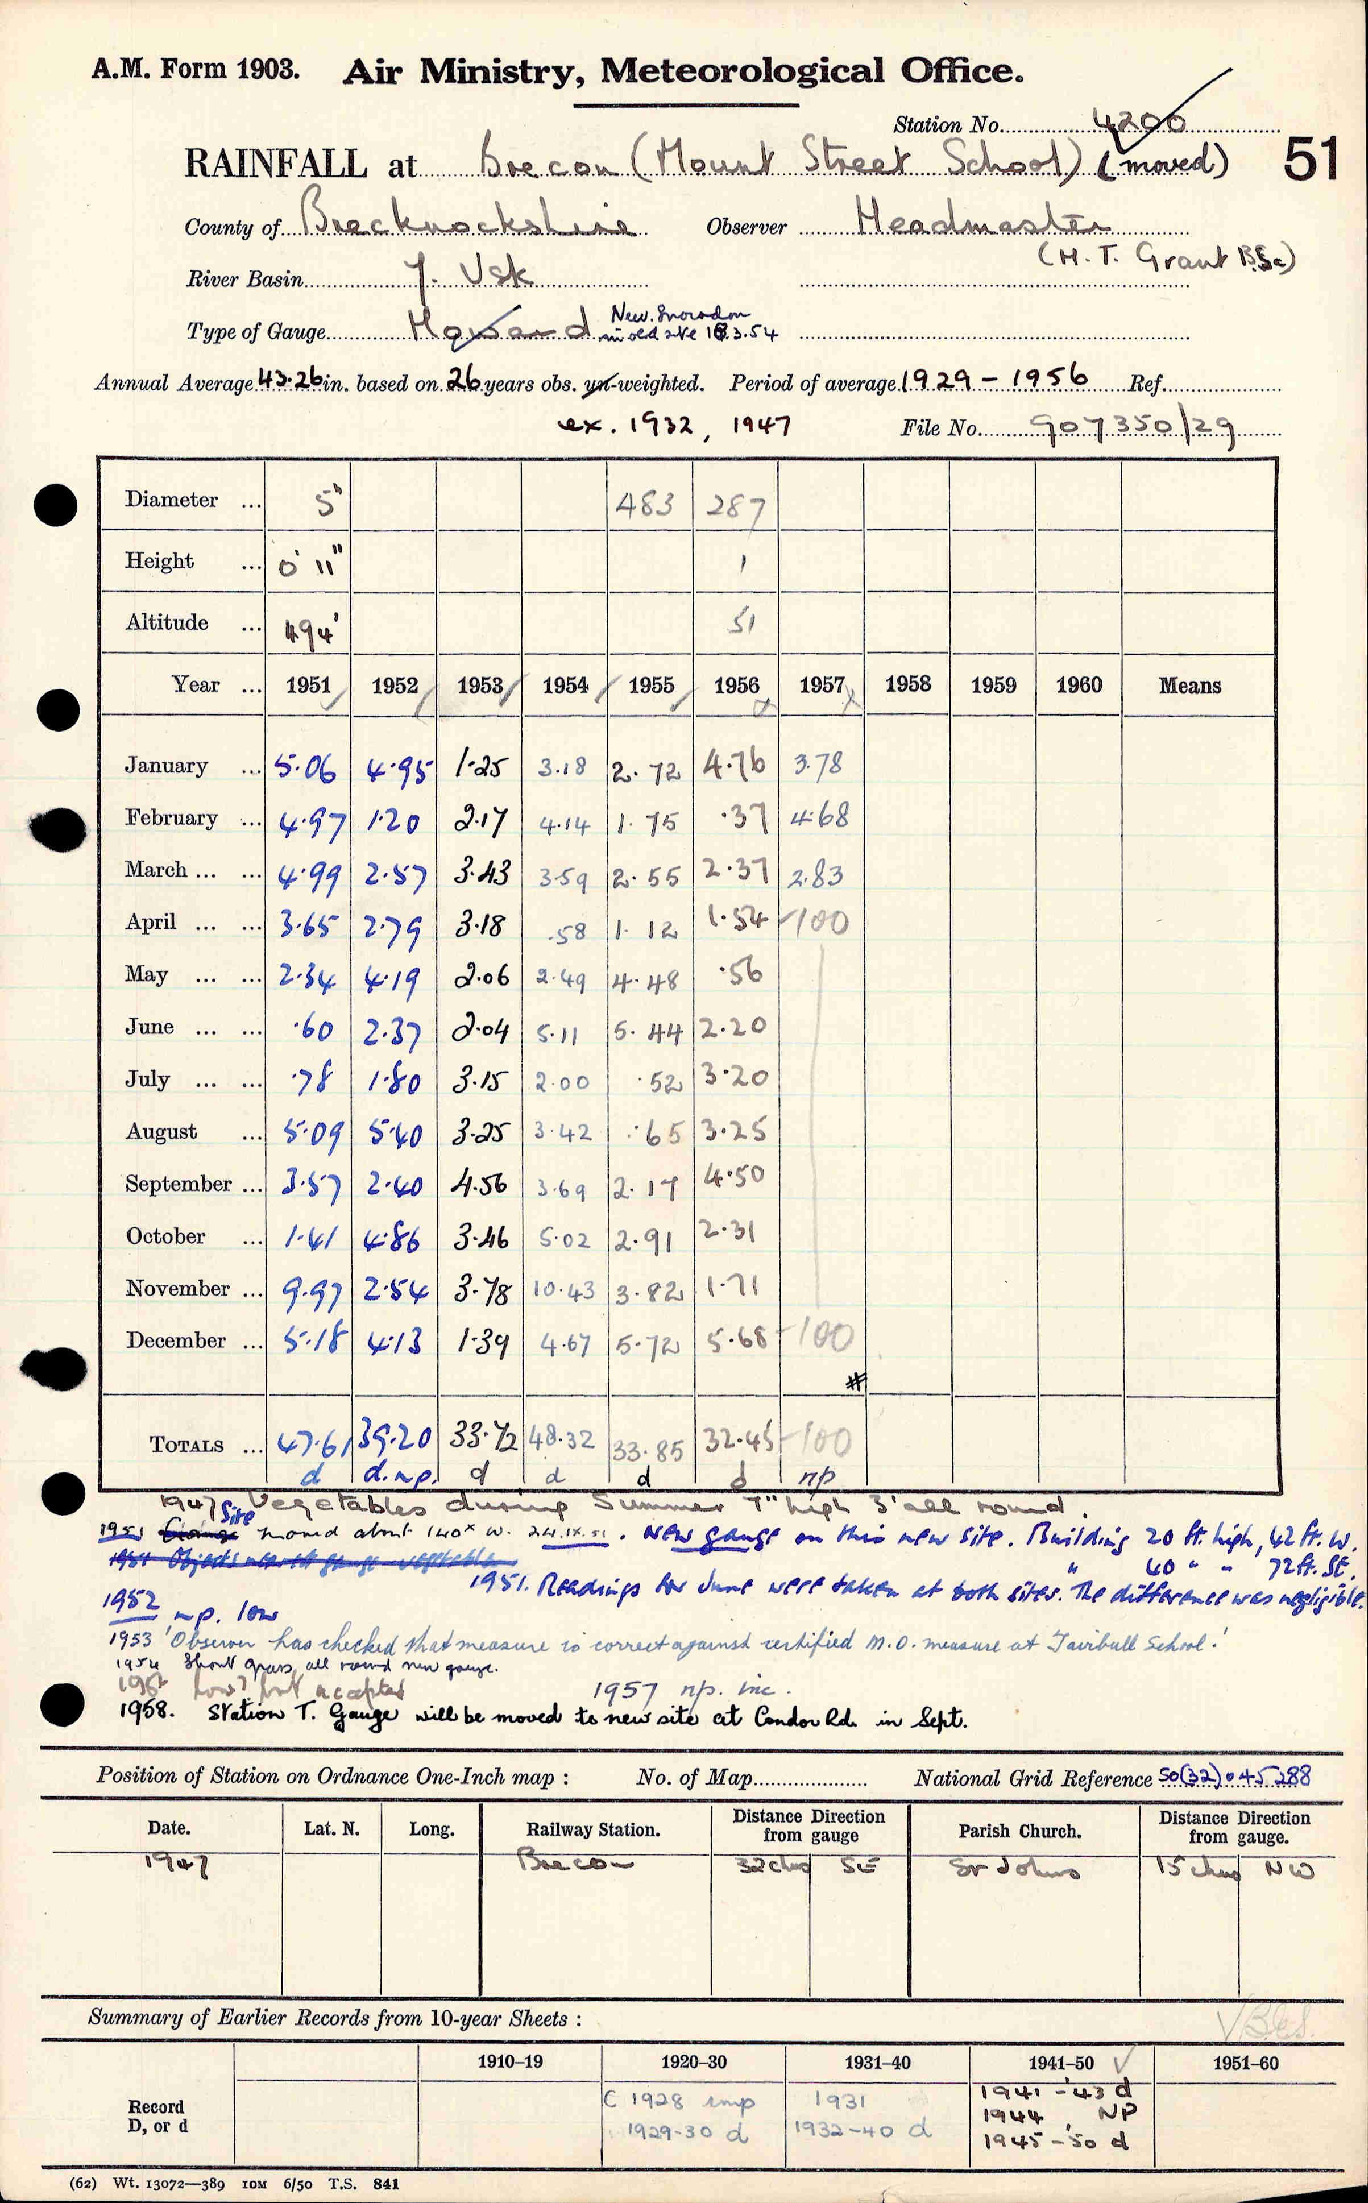 A.M. Form 1903. Air Ministry, Meteorological Office.
Station No. 4200
RAINFALL at Brecon (Mount Street School) (moved) 51
County of Brecknockshire Observer Headmaster
(H. T. Grant B.Sc)
River Basin Y. Usk
Type of Gauge Howard New. Snowdon
in old site 18.3.54
Annual Average 43.26 in. based on 26 years obs. un-weighted. Period of average 1929 - 1956 Ref.
ex. 1932, 1947 File No. 907350/29
Diameter ... 5" 483 287
Height ... 0' 11" 1
Altitude ... 494' 51
Year ... 1951 1952 1953 1954 1955 1956 1957 1958 1959 1960 Means
January ... 5.06 4.95 1.25 3.18 2.72 4.76 3.78
February ... 4.97 1.20 2.17 4.14 1.75 .37 4.68
March ... ... 4.99 2.57 3.43 3.59 2.55 2.37 2.83
April ... ... 3.65 2.79 3.18 .58 1.12 1.54 -100
May ... ... 2.34 4.19 2.06 2.49 4.48 .56
June ... ... .60 2.37 2.04 5.11 5.44 2.20
July ... ... .78 1.80 3.15 2.00 .52 3.20
August ... 5.09 5.40 3.25 3.42 .65 3.25
September ... 3.57 2.40 4.56 3.69 2.17 4.50
October ... 1.41 4.86 3.46 5.02 2.91 2.31
November ... 9.97 2.54 3.78 10.43 3.82 1.71
December ... 5.18 4.13 1.39 4.67 5.72 5.68 -100
#
TOTALS ... 47.61 39.20 33.72 48.32 33.85 32.45 -100
d d.np. d d d d np
1947 Vegetables during Summer 7" high 3' all round.
1951 Site moved about 140x W. 24.IX.51. New gauge on this new site. Building 20 ft. high, 42 ft. W.
1951 Objects nearest gauge vegetable " 40 " " 72 ft. SE.
1951. Readings for June were taken at both sites. The difference was negligible.
1952 np. low
1953 'Observer has checked that measure is correct against certified M.O. measure at School.'
1954 Short grass all round new gauge.
low? but accepted 1957 np. inc.
1958. Station T. Gauge will be moved to new site at Condor Rd. in Sept.
Position of Station on Ordnance One-Inch map : No. of Map National Grid Reference SO(32) 045 288
Date. Lat. N. Long. Railway Station. Distance Direction from gauge Parish Church. Distance Direction from gauge.
1947 Brecon 32 chs SE St Johns 15 chs NW
Summary of Earlier Records from 10-year Sheets :
1910-19 1920-30 1931-40 1941-50 1951-60
Record
D, or d
C 1928 imp 1931 1941-'43 d
1929-30 d 1932-40 d 1944, NP
1945-50 d
(62) Wt. 13072—389 10M 6/50 T.S. 841